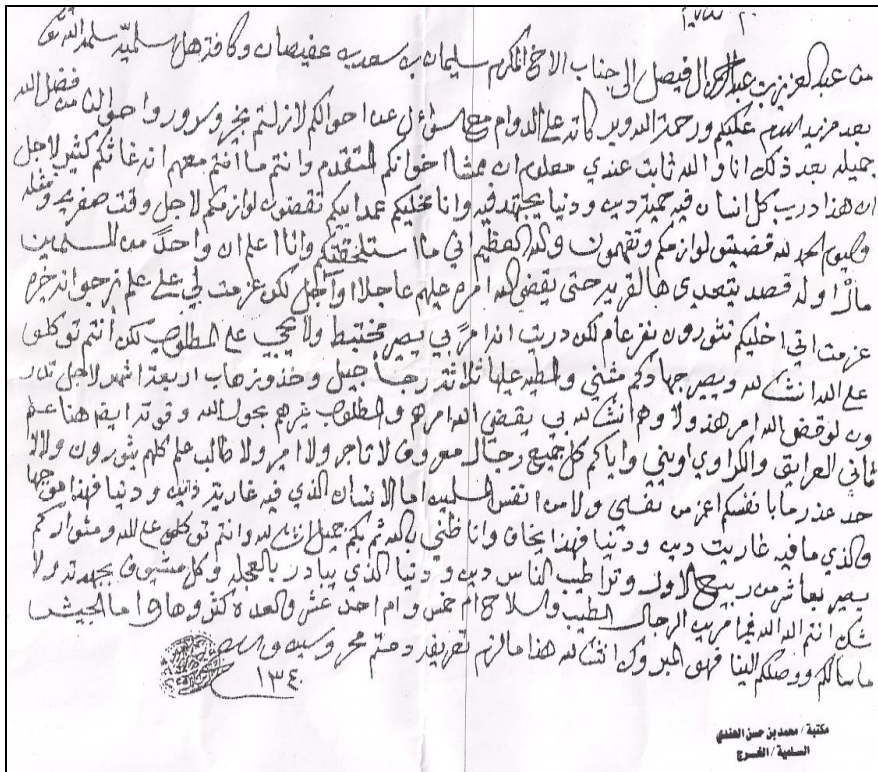 من عبدالعزيز بن عبدالرحمن ال فيصل الى جناب الاخ المكرم سليمان بن سعد بن عفيصان وكافة هل السلميه سلمهم الله تعالى
بعد مزيد السلام عليكم ورحمة الله وبركاته على الدوام مع السؤال عن احوالكم لازلتم بخير وسرور واحوالنا من فضل الله
جميله بعد ذلك انا والله ثابت عندي معلوم ان ممشا اخوانكم المتقدم وانتم ما انتم معهم انه غاثكم كثير لاجل
ان هذا درب كل انسان فيه حمية دين ودنيا يجتهد فيه وانا مخليكم عمدا ابيكم تقضون لوازمكم لاجل وقت صفريه
واليوم الحمد لله قضيتو لوازمكم وتفهمون والله العظيم اني ما استلحقتكم وانا اعلم ان واحد من المسلمين
ماله اوله قصد يتعدى هالقريه حتى يقضي الله امره عليهم عاجلا او آجل لكن عزمت على نرجو انه خيره
عزمت اني اخليكم تثورون نفر عام لكن دريت انه امر بي يصير مختبط ولا يجي على المطلوب لكن أنتم توكلون
على الله انشالله ويصير جهادكم مثني والمطيه عليها ثلاثة رجاجيل وخذو زهاب اربعة اشهر لاجل
ون لوقضى الله امر هذولا وهم انشالله بي يقضي الله امرهم والمطلوب يثرهم بحول الله وقوته
كل جميع رجال معروف لا تاجر ولا امير ولا طالب علم كلهم يثورون ولا
حد عذر ما بانفسكم اعز من نفسي ولا من انفس المسلمين اما الانسان الذي فيه غارية دين ودنيا فهذا
والذي ما فيه غارية دين ودنيا فهذا يخاف وانا ظني بالله ثم بكم جميل انشالله وانتم توكلون على الله ومثواركم
يصير بعاشر من ربيع الاول وتراطيب الناس دين ودنيا الذي يبادر بالعجله وكل مشيوف بجهدته ولا
شك انتم الله الله الرجال الطيب والسلاح ام خمس وام احد عشر والعدة كثروها واما الجيش
ماسالكم ووصلكم الينا فهو المبروك انشالله هذا مالزم تعريفه ودمتم محروسين والسلام
١٣٤٠
مكتبة / محمد بن حسن الهندي
السلمية / الخرج